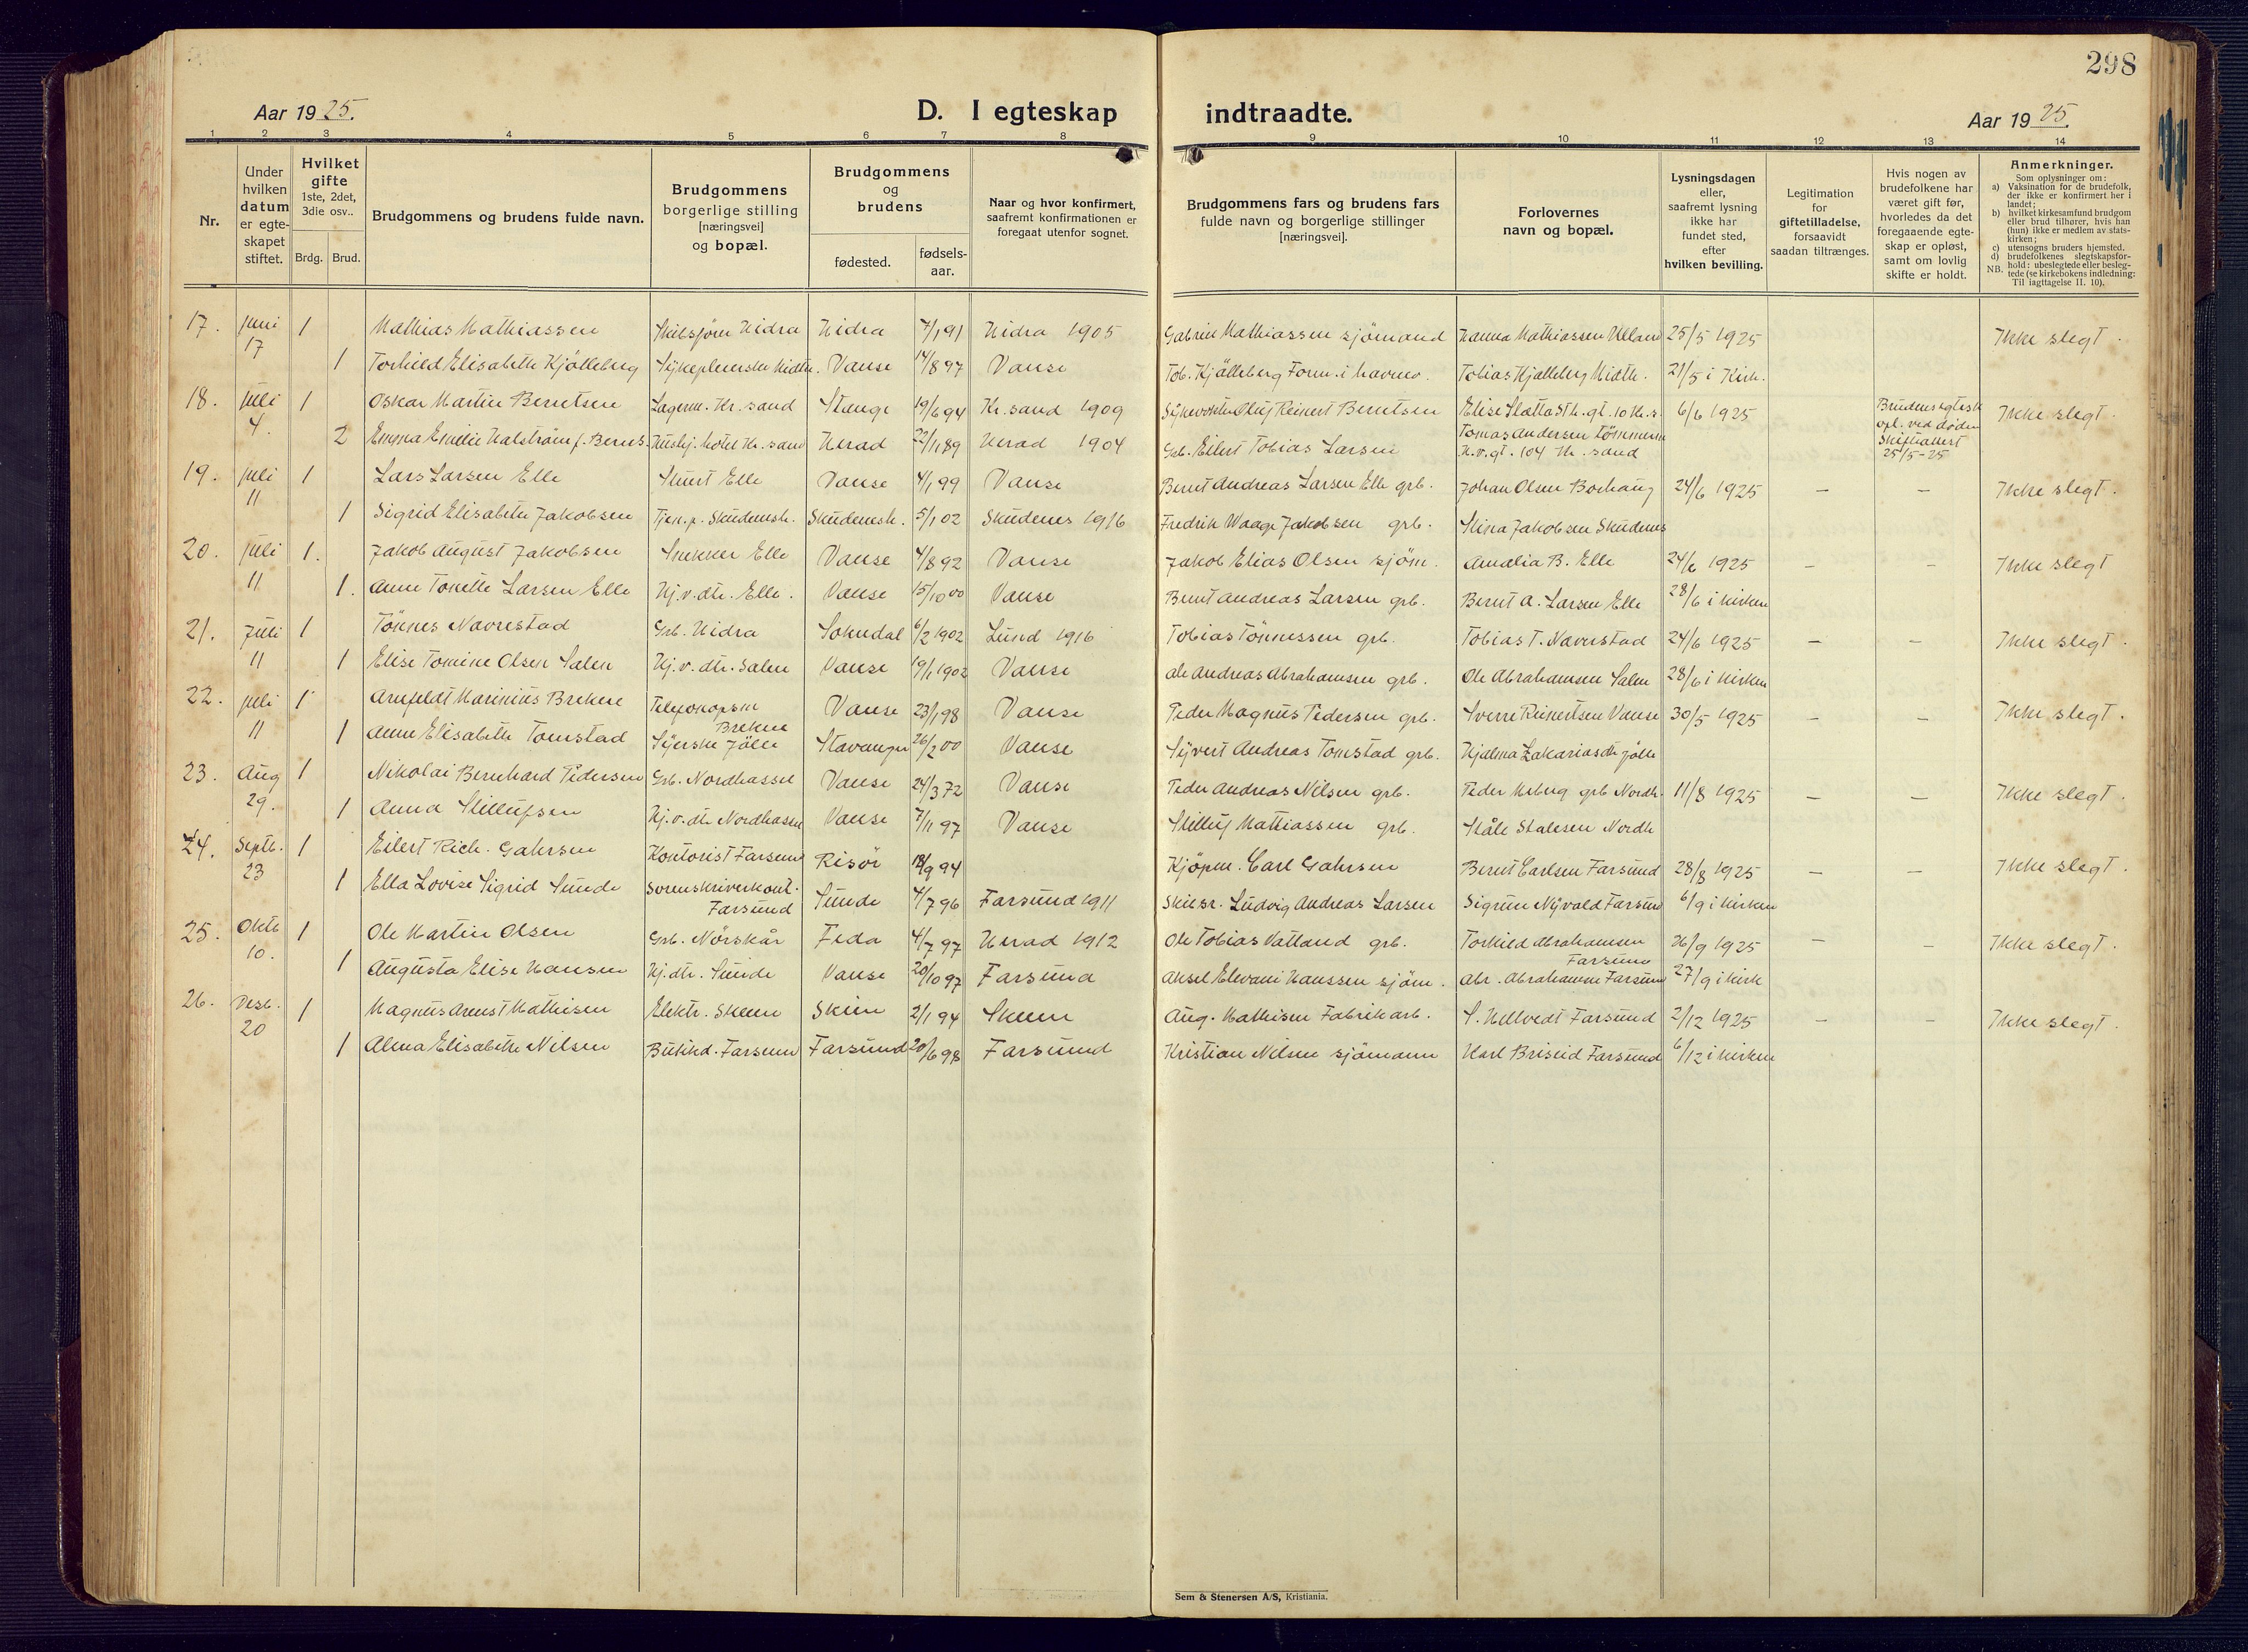 298
Aar 1925.
D. I egteskap indtraadte.
Aar 1925.
1 2 3 4 5 6 7 8 9 10 11 12 13 14
Nr.
Under hvilken datum er egte-skapet stiftet.
Hvilket gifte 1ste, 2det, 3die osv..
Brdg. Brud.
Brudgommens og brudens fulde navn.
Brudgommens borgerlige stilling [næringsvei] og bopæl.
Brudgommens og brudens
fødested. fødsels-aar.
Naar og hvor konfirmert, saafremt konfirmationen er foregaat utenfor sognet.
Brudgommens fars og brudens fars fulde navn og borgerlige stillinger [næringsvei].
Forlovernes navn og bopæl.
Lysningsdagen eller, saafremt lysning ikke har fundet sted, efter hvilken bevilling.
Legitimation for giftetilladelse, forsaavidt saadan tiltrænges.
Hvis nogen av brudefolkene har været gift før, hvorledes da det foregaaende egte-skap er opløst, samt om lovlig skifte er holdt.
Anmerkninger.
Som oplysninger om:
a) Vaksination for de brudefolk, der ikke er konfirmert her i landet;
b) hvilket kirkesamfund brudgom eller brud tilhører, hvis han (hun) ikke er medlem av stats-kirken;
c) utensogns bruders hjemsted.
d) brudefolkenes slegtskapsfor-hold: ubeslegtede eller besleg-tede (se kirkebokens indledning: Til iagttagelse II. 10).
NB.
17. juni 17 1 Mathias Mathiassen Hidra Hidra 7/1 91 Hidra 1905 Gabriel Mathiassen sjömand Hanna Mathiassen 25/5 1925 Ikke slegt.
1 Torhild Elisabeth Kjölleberg Vanse 14/8 97 Vanse Tob. Kjölleberg Form. i havnev. Tobias Kjölleberg 21/5 i Kirk.
18. juli 4. 1 Oskar Martin Berntsen Lagerm. Kr.sand Stange 19/6 94 Kr.sand 1909 Oluf Reinert Berntsen 6/6 1925 Brudens egtesk opl. ved döden Skifteattest 25/5-25 Ikke slegt.
2 Emma Emelie Halström f. Bernts. Husbj. hotel Kr.sand Herad 22/11 89 Herad 1904 Grb. Eilert Tobias Larsen Tomas Andersen Tömmerm H.v.gt. 104 Kr.sand
19. juli 11 1 Lars Larsen Elle Stuert Elle Vanse 4/1 99 Vanse Bernt Andreas Larsen Elle grb. Johan Olsen Borhaug 24/6 1925 – – Ikke slegt.
1 Sigrid Elisabeth Jakobsen Tjen.p. Skudenesh. Skudenesh. 5/1 02 Skudenes 1916 Fredrik Waage Jakobsen grb. Stina Jakobsen Skudenes
20. juli 11 1. Jakob August Jakobsen Snekker Elle Vanse 4/8 92 Vanse Jakob Elias Olsen sjöm. Amalia B. Elle 24/6 1925 – – Ikke slegt
1. Anne Tonette Larsen Elle Hj.v.dtr. Elle. Vanse 15/10 00 Vanse Bernt Andreas Larsen grb. Bernt A. Larsen Elle 28/6 i kirken
21. Juli 11 1 Tönnes Navrestad Grb. Hidra Sokndal 6/2 1902 Lund 1916 Tobias Tönnessen grb. Tobias T. Navrestad 24/6 1925 – – Ikke slegt.
1 Elise Tomine Olsen Salen Hj.v.dtr. Salen Vanse 19/1 1902 Vanse Ole Andreas Abrahamsen grb. Ole Abrahamsen Salen 28/6 i kirken
22. juli 11 1 Arnfeldt Marinius Brekne Brekne Vanse 23/1 98 Vanse Peder Magnus Pedersen grb. Sverre Reinertsen Vanse 30/5 1925 – – Ikke slegt.
1 Anne Elisabeth Tomstad Syerske Jölle Stavanger 26/2 00 Vanse Syvert Andreas Tomstad grb. Hjalma Zakariasdtr Jölle
23. Aug 29. 1 Nikolai Bernhard Pedersen Grb. Nordhassel Vanse 24/3 72 Vanse Peder Andreas Nilsen grb. Peder grb Nordh. 11/8 1925 – – Ikke slegt.
1 Anna Stillufsen Hj.v.dtr Nordhassel Vanse 7/11 97 Vanse Stilluf Mathiassen grb. Ståle Stalesen Nordh
24. Septb. 23 1 Eilert Rich. Gahrsen Kontorist Farsund Risör 18/9 94 Kjöpm. Carl Gahrsen Bernt Carlsen Farsund 28/8 1925 – – Ikke slegt.
1 Ella Lovise Sigrid Sunde Sorenskriverkont. Farsund Sunde 4/7 96 Farsund 1911 Ludvig Andreas Larsen Sigrun Nyvold Farsund 6/9 i kirken
25. Oktb 10. 1 Ole Martin Olsen Grb. Nörskår Feda 4/7 97 Herad 1912 Ole Tobias Vatland grb. Torkild Abrahamsen Farsund 26/9 1925 – – Ikke slegt.
1 Augusta Elise Hansen Hj.dtr. Sunde Vanse 20/10 97 Farsund Aksel Hanssen sjöm. Abr. Abrahamsen Farsund 27/9 i kirk
26. Desb. 20 1 Magnus Arent Mathisen Elektr. Skien Skien 2/1 94 Skien Aug. Mathisen Fabrikarb. S. Hellvedt Farsund 2/12 1925 – – Ikke slegt.
1 Alma Elisabeth Nilsen Butikd. Farsund Farsund 20/6 98 Farsund Kristian Nilsen sjömann Karl Briseid Farsund 6/12 i kirken
Sem & Stenersen A/S, Kristiania.